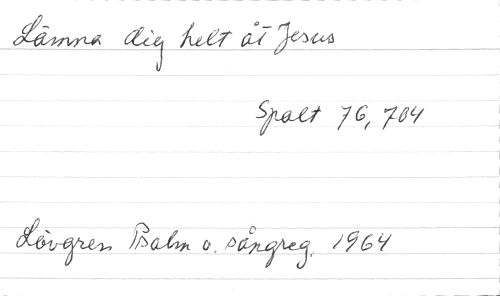 Lämna dig helt åt Jesus
Spalt 76, 704
Lövgren Psalm o. sångreg. 1964